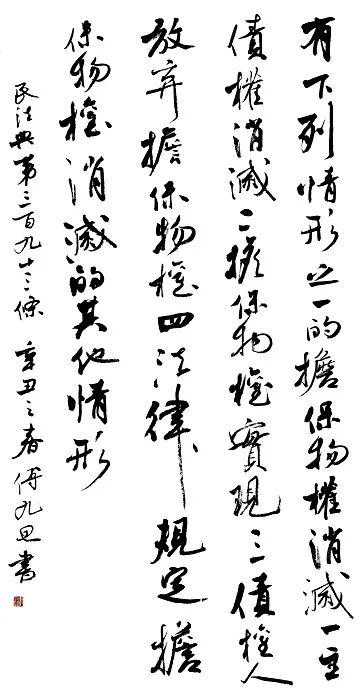 有下列情形之一的擔保物權消滅一主
債權消滅二擔保物權實現三債權人
放弃擔保物權四法律規定擔
保物權消滅的其他情形
民法典第三百九十三條 辛丑之春 九 書